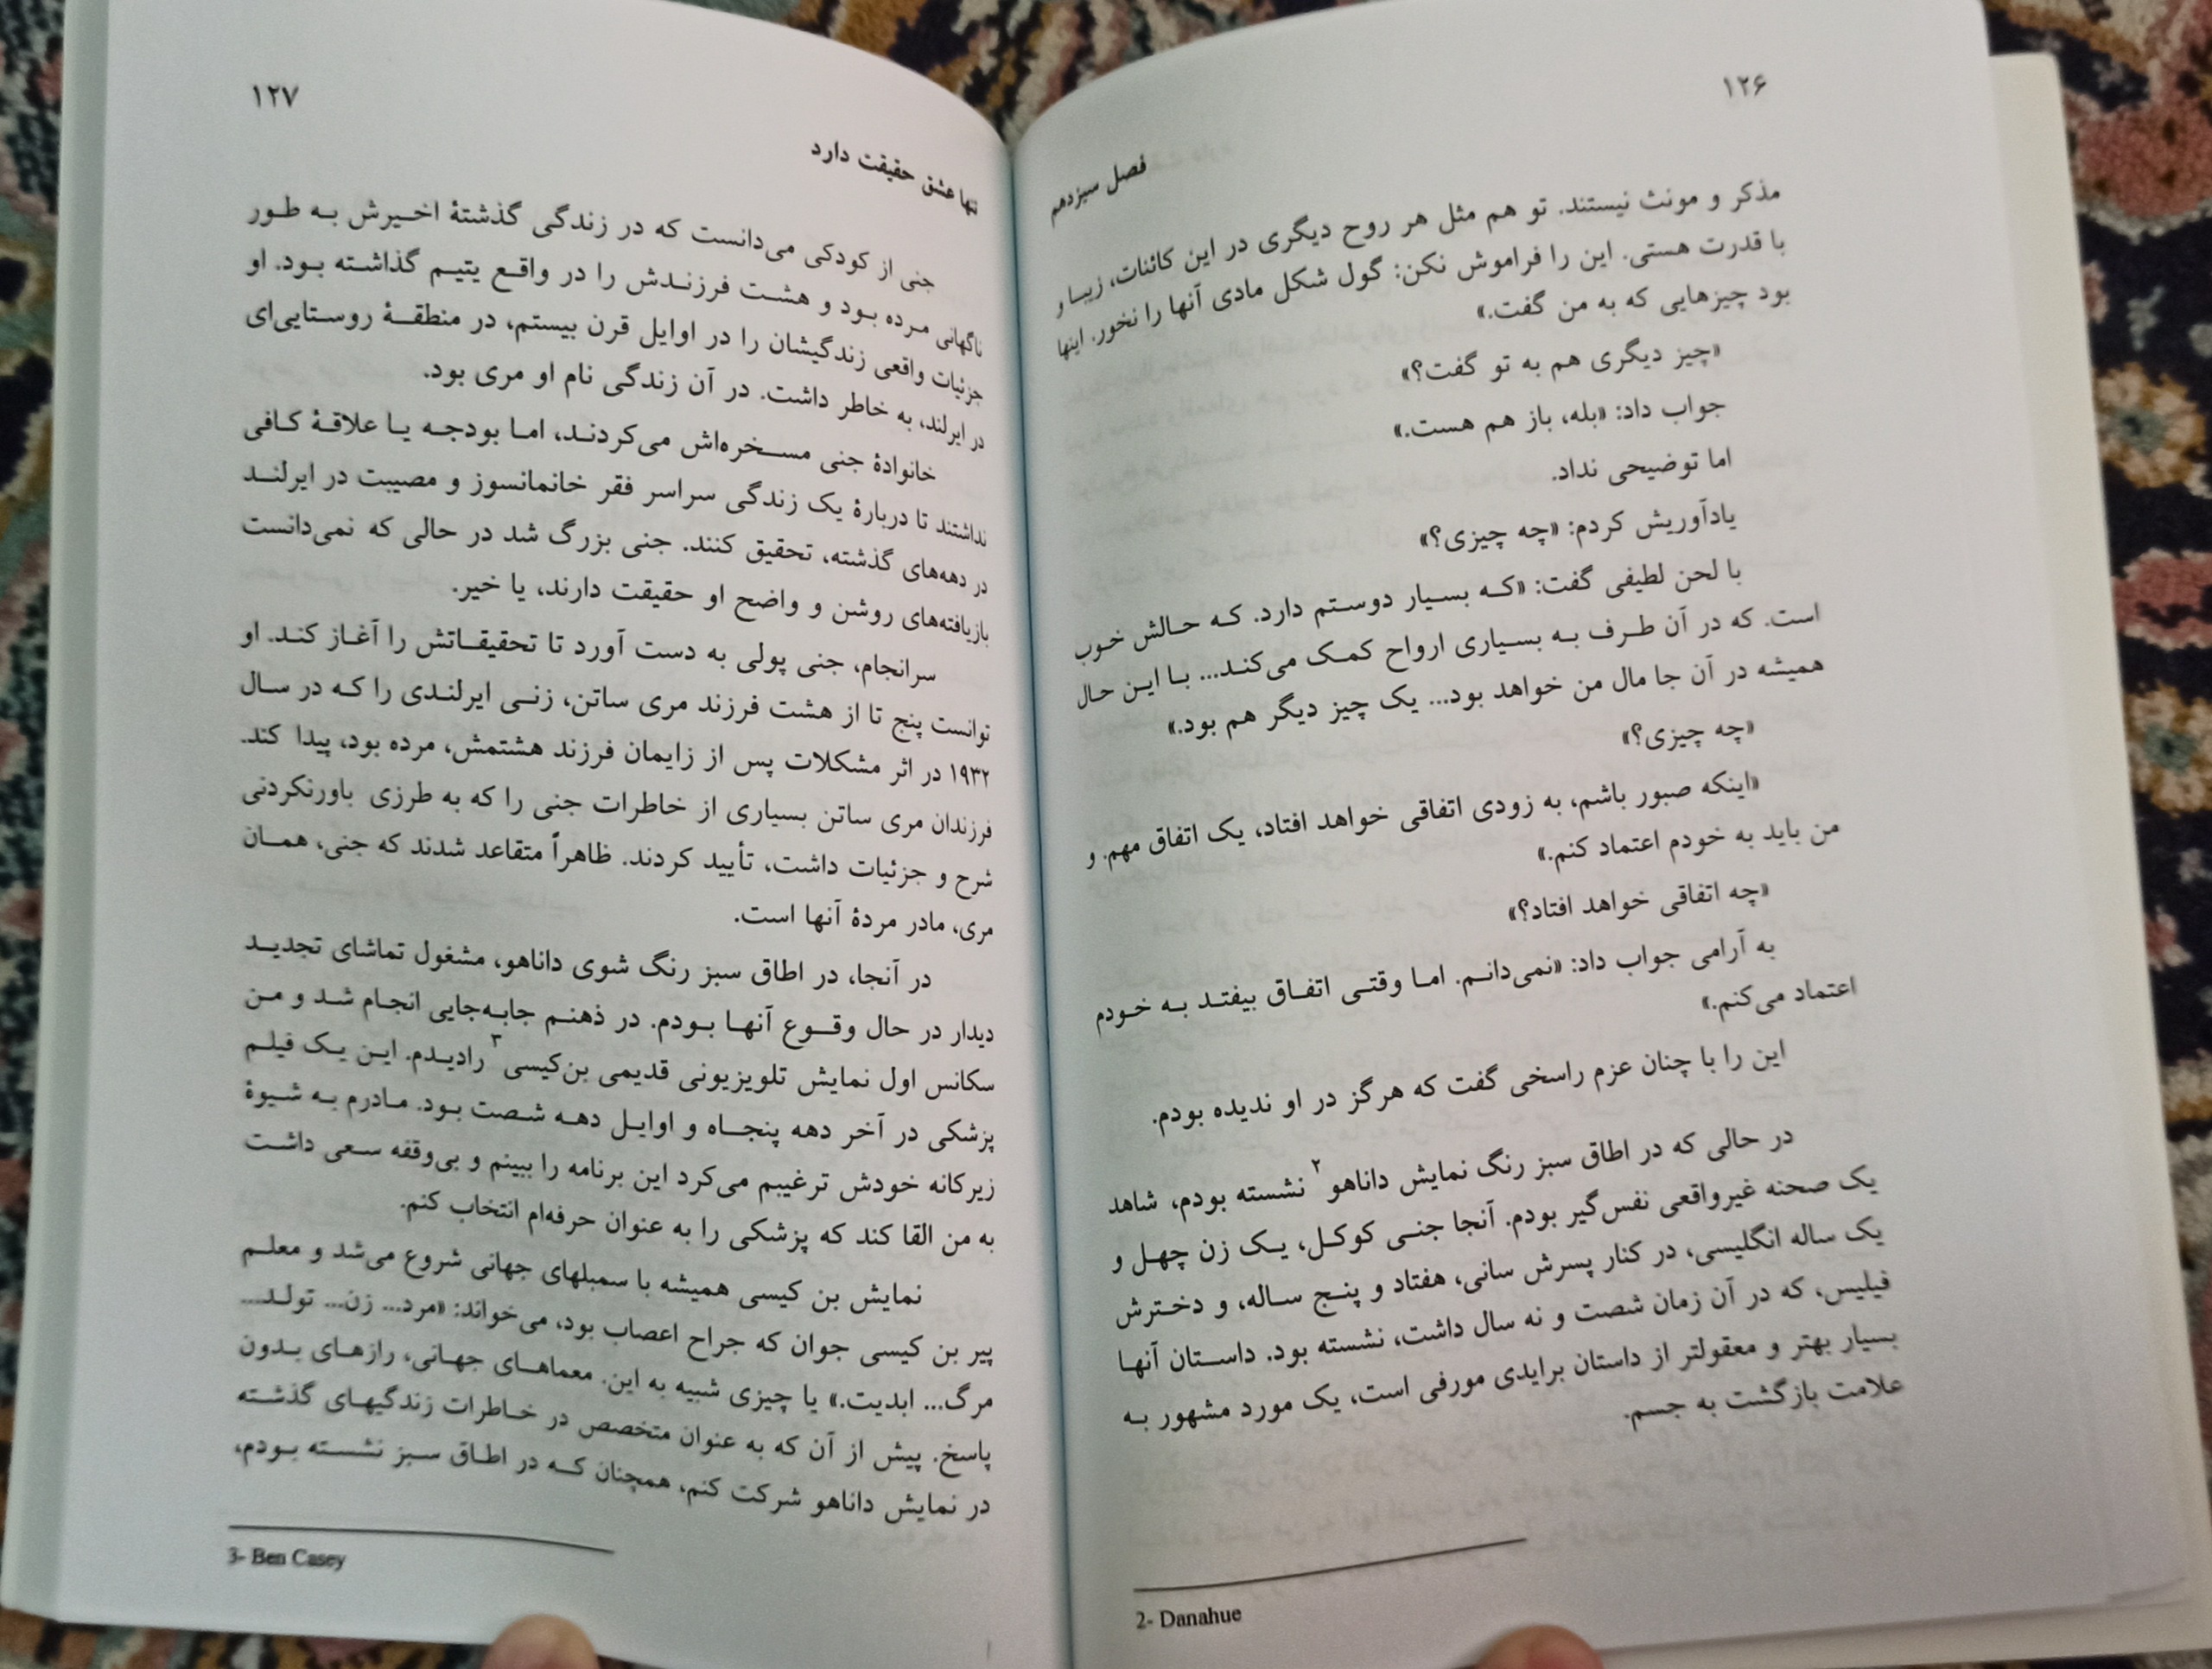 ۱۲۶
فصل سیزدهم
مذکر و مونث نیستند. تو هم مثل هر روح دیگری در این کائنات، زیبا و
با قدرت هستی. این را فراموش نکن: گول شکل مادی آنها را نخور. اینها
بود چیزهایی که به من گفت.»
«چیز دیگری هم به تو گفت؟»
جواب داد: «بله، باز هم هست.»
اما توضیحی نداد.
یادآوریش کردم: «چه چیزی؟»
با لحن لطیفی گفت: «که بسیار دوستم دارد. که حالش خوب
است. که در آن طرف به بسیاری ارواح کمک می‌کند... با این حال
همیشه در آن جا مال من خواهد بود... یک چیز دیگر هم بود.»
«چه چیزی؟»
«اینکه صبور باشم، به زودی اتفاقی خواهد افتاد، یک اتفاق مهم. و
من باید به خودم اعتماد کنم.»
«چه اتفاقی خواهد افتاد؟»
به آرامی جواب داد: «نمی‌دانم. اما وقتی اتفاق بیفتد به خودم
اعتماد می‌کنم.»
این را با چنان عزم راسخی گفت که هرگز در او ندیده بودم.
در حالی که در اطاق سبز رنگ نمایش داناهو۲ نشسته بودم، شاهد
یک صحنه غیرواقعی نفس‌گیر بودم. آنجا جنی کوکل، یک زن چهل و
یک ساله انگلیسی، در کنار پسرش سانی، هفتاد و پنج ساله، و دخترش
فیلیس، که در آن زمان شصت و نه سال داشت، نشسته بود. داستان آنها
بسیار بهتر و معقولتر از داستان برایدی مورفی است، یک مورد مشهور به
علامت بازگشت به جسم.
2- Danahue
۱۲۷
تنها عشق حقیقت دارد
جنی از کودکی می‌دانست که در زندگی گذشتهٔ اخیرش به طور
ناگهانی مرده بود و هشت فرزندش را در واقع یتیم گذاشته بود. او
جزئیات واقعی زندگیشان را در اوایل قرن بیستم، در منطقهٔ روستایی‌ای
در ایرلند، به خاطر داشت. در آن زندگی نام او مری بود.
خانوادهٔ جنی مسخره‌اش می‌کردند، اما بودجه یا علاقهٔ کافی
نداشتند تا دربارهٔ یک زندگی سراسر فقر خانمانسوز و مصیبت در ایرلند
در دهه‌های گذشته، تحقیق کنند. جنی بزرگ شد در حالی که نمی‌دانست
بازیافته‌های روشن و واضح او حقیقت دارند، یا خیر.
سرانجام، جنی پولی به دست آورد تا تحقیقاتش را آغاز کند. او
توانست پنج تا از هشت فرزند مری ساتن، زنی ایرلندی را که در سال
۱۹۳۲ در اثر مشکلات پس از زایمان فرزند هشتمش، مرده بود، پیدا کند.
فرزندان مری ساتن بسیاری از خاطرات جنی را که به طرزی باورنکردنی
شرح و جزئیات داشت، تأیید کردند. ظاهراً متقاعد شدند که جنی، همان
مری، مادر مردهٔ آنها است.
در آنجا، در اطاق سبز رنگ شوی داناهو، مشغول تماشای تجدید
دیدار در حال وقوع آنها بودم. در ذهنم جابه‌جایی انجام شد و من
سکانس اول نمایش تلویزیونی قدیمی بن‌کیسی۳ رادیدم. این یک فیلم
پزشکی در آخر دهه پنجاه و اوایل دهه شصت بود. مادرم به شیوهٔ
زیرکانه خودش ترغیبم می‌کرد این برنامه را ببینم و بی‌وقفه سعی داشت
به من القا کند که پزشکی را به عنوان حرفه‌ام انتخاب کنم.
نمایش بن کیسی همیشه با سمبلهای جهانی شروع می‌شد و معلم
پیر بن کیسی جوان که جراح اعصاب بود، می‌خواند: «مرد... زن... تولد...
مرگ... ابدیت.» یا چیزی شبیه به این. معماهای جهانی، رازهای بدون
پاسخ. پیش از آن که به عنوان متخصص در خاطرات زندگیهای گذشته
در نمایش داناهو شرکت کنم، همچنان که در اطاق سبز نشسته بودم،
3- Ben Casey